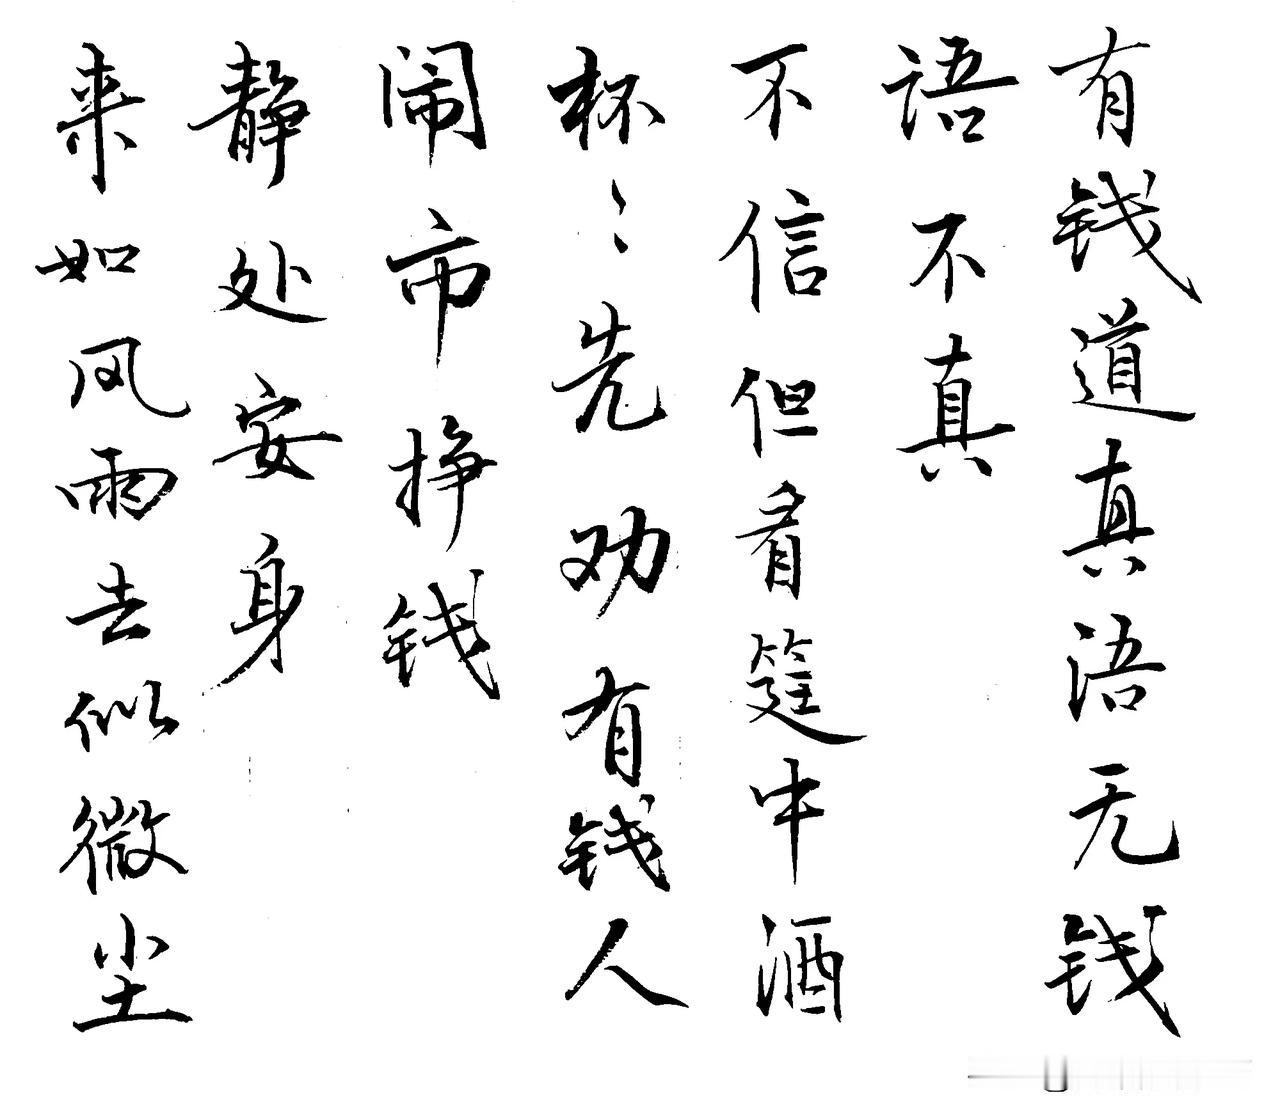 有钱道真语无钱
语不真
不信但看筵中酒
杯〻先劝有钱人
闹市挣钱
静处安身
来如风雨去似微尘